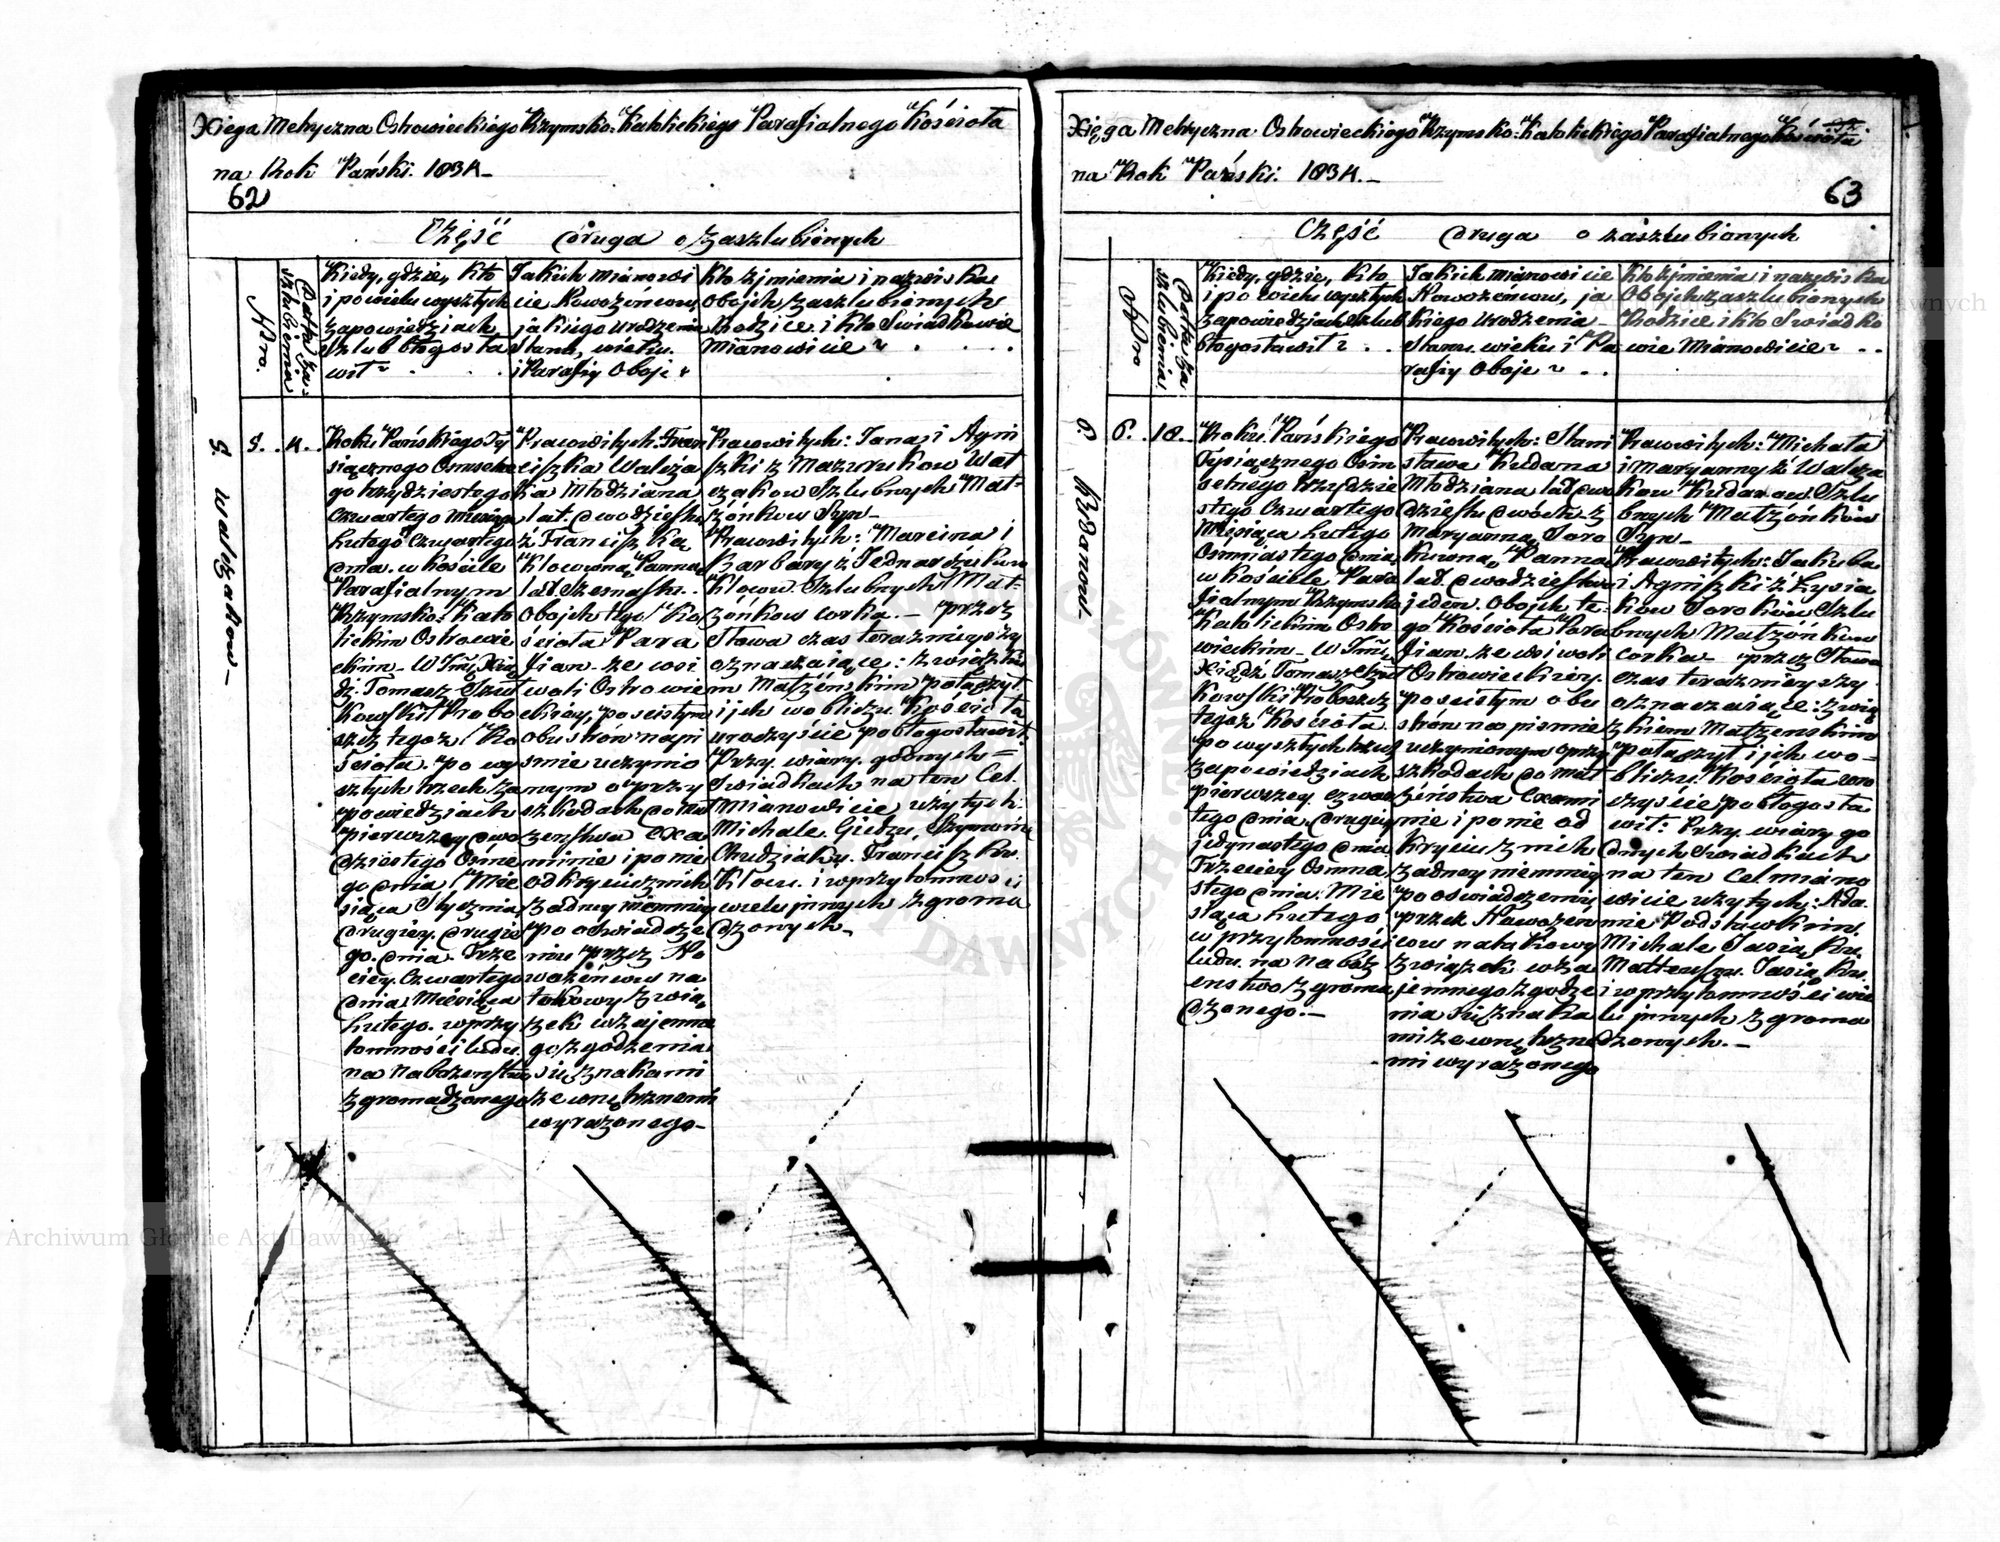 Xięga Metryczna Ostrowieckiego Rzymsko: Katolickiego Parafialnego Kościoła
na Rok Pański. 1834.
62
Część druga o zaszlubionych
Nro.
Data za-
szlubienia
Kiedy, gdzie, kto
i po wielu wyszłych
zapowiedziach
Szlub błogosła
wił
Jakich mianowi
cie Nowożeńcow
jakiego urodzenia
Stanu, wieku.
i Parafiy Oboje
Kto z jmienia i nazwiska
Obojch zaszlubionych
Rodzice i kto Swiadkowie
Mianowicie
5. Walczakow
5. 4.
Roku Pańskiego Ty
siącznego Osmsetne
go trzydziestego
Czwartego Miesiąca
Lutego Czwartego
dnia w Kościele
Parafialnym
Rzymsko: Kato
lickim Ostrowie
ckim W Jmć Xią
dz. Tomasz Szut
kowski Probo
szcz tegoz Ko
ścioła. po wy
szłych trzech za
powiedziach
pierwszey dwo
dziestego Osme
go dnia Mie
siąca Stycznia
drugiey. drugie
go. dnia. trze
ciey. Czwartego
dnia Miesiąca
Lutego. w przy
tomności ludu.
na nabożenstwo
zgromadzonego
Pracowitych: Fran
ciszka Walcza
ka Młodziana
lat. dwodziestu
z Franciszką
Klowną Panną
lat. Szesnastu.
Obojch tego Ko
ścioła Para
fian. ze wsi
woli Ostrowie
ckiey, po scistym
obustrón napi
smie uczynio
nym o przy
szkodach do Mał
zenstwa exa
minie i po nie
odkryciu z nich
zadney niemniey
po oswiadcze
niu przez No
wożeńcow na
takowy zwią
zek wzajemne
go zgodzenia
się znakami
zewnętrznemi
wyrazonego
Pracowitych: Jana i Agni
szki z Mazurukow Wal
czakow Szlubnych Mał-
żónkow Syn
Pracowitych: Marcina i
Barbary z Jednarczukow
Klow. Szlubnych Mał-
żónkow corka. przez
Słowa czas teraznieyszy
oznaczaiące: zwiążkiem
Małżeńskim połączył
i jch w obliczu Kościoła
uroczyście pobłogosławił.
Przy. wiary. godnych
Swiadkach na ten Cel.
Mianowicie użytych
Michale. Gidzu, Szymonie
Chudziaku. Franciszku.
Klow. i w przytomnosci
wielu jnnych zgroma
dzonych.
Xięga Metryczna Ostrowieckiego Rzymsko: Katolickiego Parafialnego Kościoła
na Rok Pański. 1834.
63
Część druga o zaszlubionych
Nro
Data za
szlubienia
Kiedy, gdzie, kto
i po wielu wyszłych
zapowiedziach Szlub
błogosławił
Jakich mianowicie
Nowożeńcow, ja
kiego urodzenia
Stanu. wieku i Pa
rafiy Oboje
Kto z jmienia i nazwiska
Obojch zaszlubionych
Rodzice i kto Swiadko
wie Mianowicie
6. Kudanow.
6. 18.
Roku. Pańskiego
Tysiącznego Osm
setnego trzydzie
stego Czwartego
Miesiąca Lutego
Osmnastego dnia
w Kościele Para
fialnym Rzymsko
Katolickim Ostro
wieckim. W Jmć
Xiądz Tomasz Szut
kowski Proboszcz
tegoz Kościoła.
po wyszłych trzech
zapowiedziach
pierwszey. czwar
tego dnia. drugiey
jedynastego dnia
Trzeciey Osmna
stego dnia. Mie
siąca Lutego
w przytomności
ludu. na nabóż
enstwo zgroma
dzonego.
Pracowitych: Stani
sława Kudana
Młodziana lat dwo
dziestu dwóch z
Maryanną Soro
kuwną Panną
lat. dwodziestu
jeden. Obojch te-
go Kościoła Para
fian. ze wsi woli
Ostrowieckiey.
po scistym obu
strón na pismie
uczynionym o przy
szkodach do Mał
żeństwa Exami
nie i po nie od
kryciu z nich
zadney niemniey
po oswiadczeniu
przez Nowożeń
cow na takowy
związek wza
jemnego zgodze
nia się znaka
mi zewnętrzne
mi wyrażonego
Pracowitych: Michała
i Maryanny z Walcza
kow Kudanow. Szlu
bnych Małżónków
Syn
Pracowitych: Jakuba
i Agniszki z Łysia
kow Sorokow Szlu
bnych Małżónkow
corka przez Słowa
czas teraznieyszy
oznaczaiące: zwią
zkiem Małżenskim
połączył i jch w o-
bliczu. Kościoła uro
czyście pobłogosła
wił: Przy. wiary go
dnych Swiadkach
na ten Cel miano
wicie użytych: Ada
mie Podstawkim
Michale Jasiaku.
Matteuszu. Jasiaku
i w przytomności wie
lu jnnych zgroma
dzonych.
Archiwum Główne Akt Dawnych